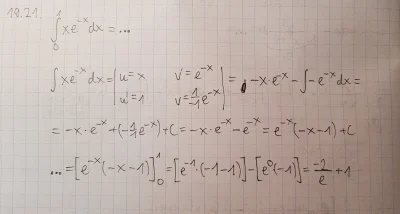 19.21.
∫₀¹ xe⁻ˣdx = ...
∫xe⁻ˣdx = | u=x v'=e⁻ˣ u'=1 v=1/-1 e⁻ˣ | = -x·e⁻ˣ - ∫-e⁻ˣdx =
= -x·e⁻ˣ + (-1/1 e⁻ˣ) + C = -x·e⁻ˣ - e⁻ˣ = e⁻ˣ(-x-1) + C
... = [e⁻ˣ(-x-1)]₀¹ = [e⁻¹·(-1-1)] - [e⁰(-1)] = -2/e + 1